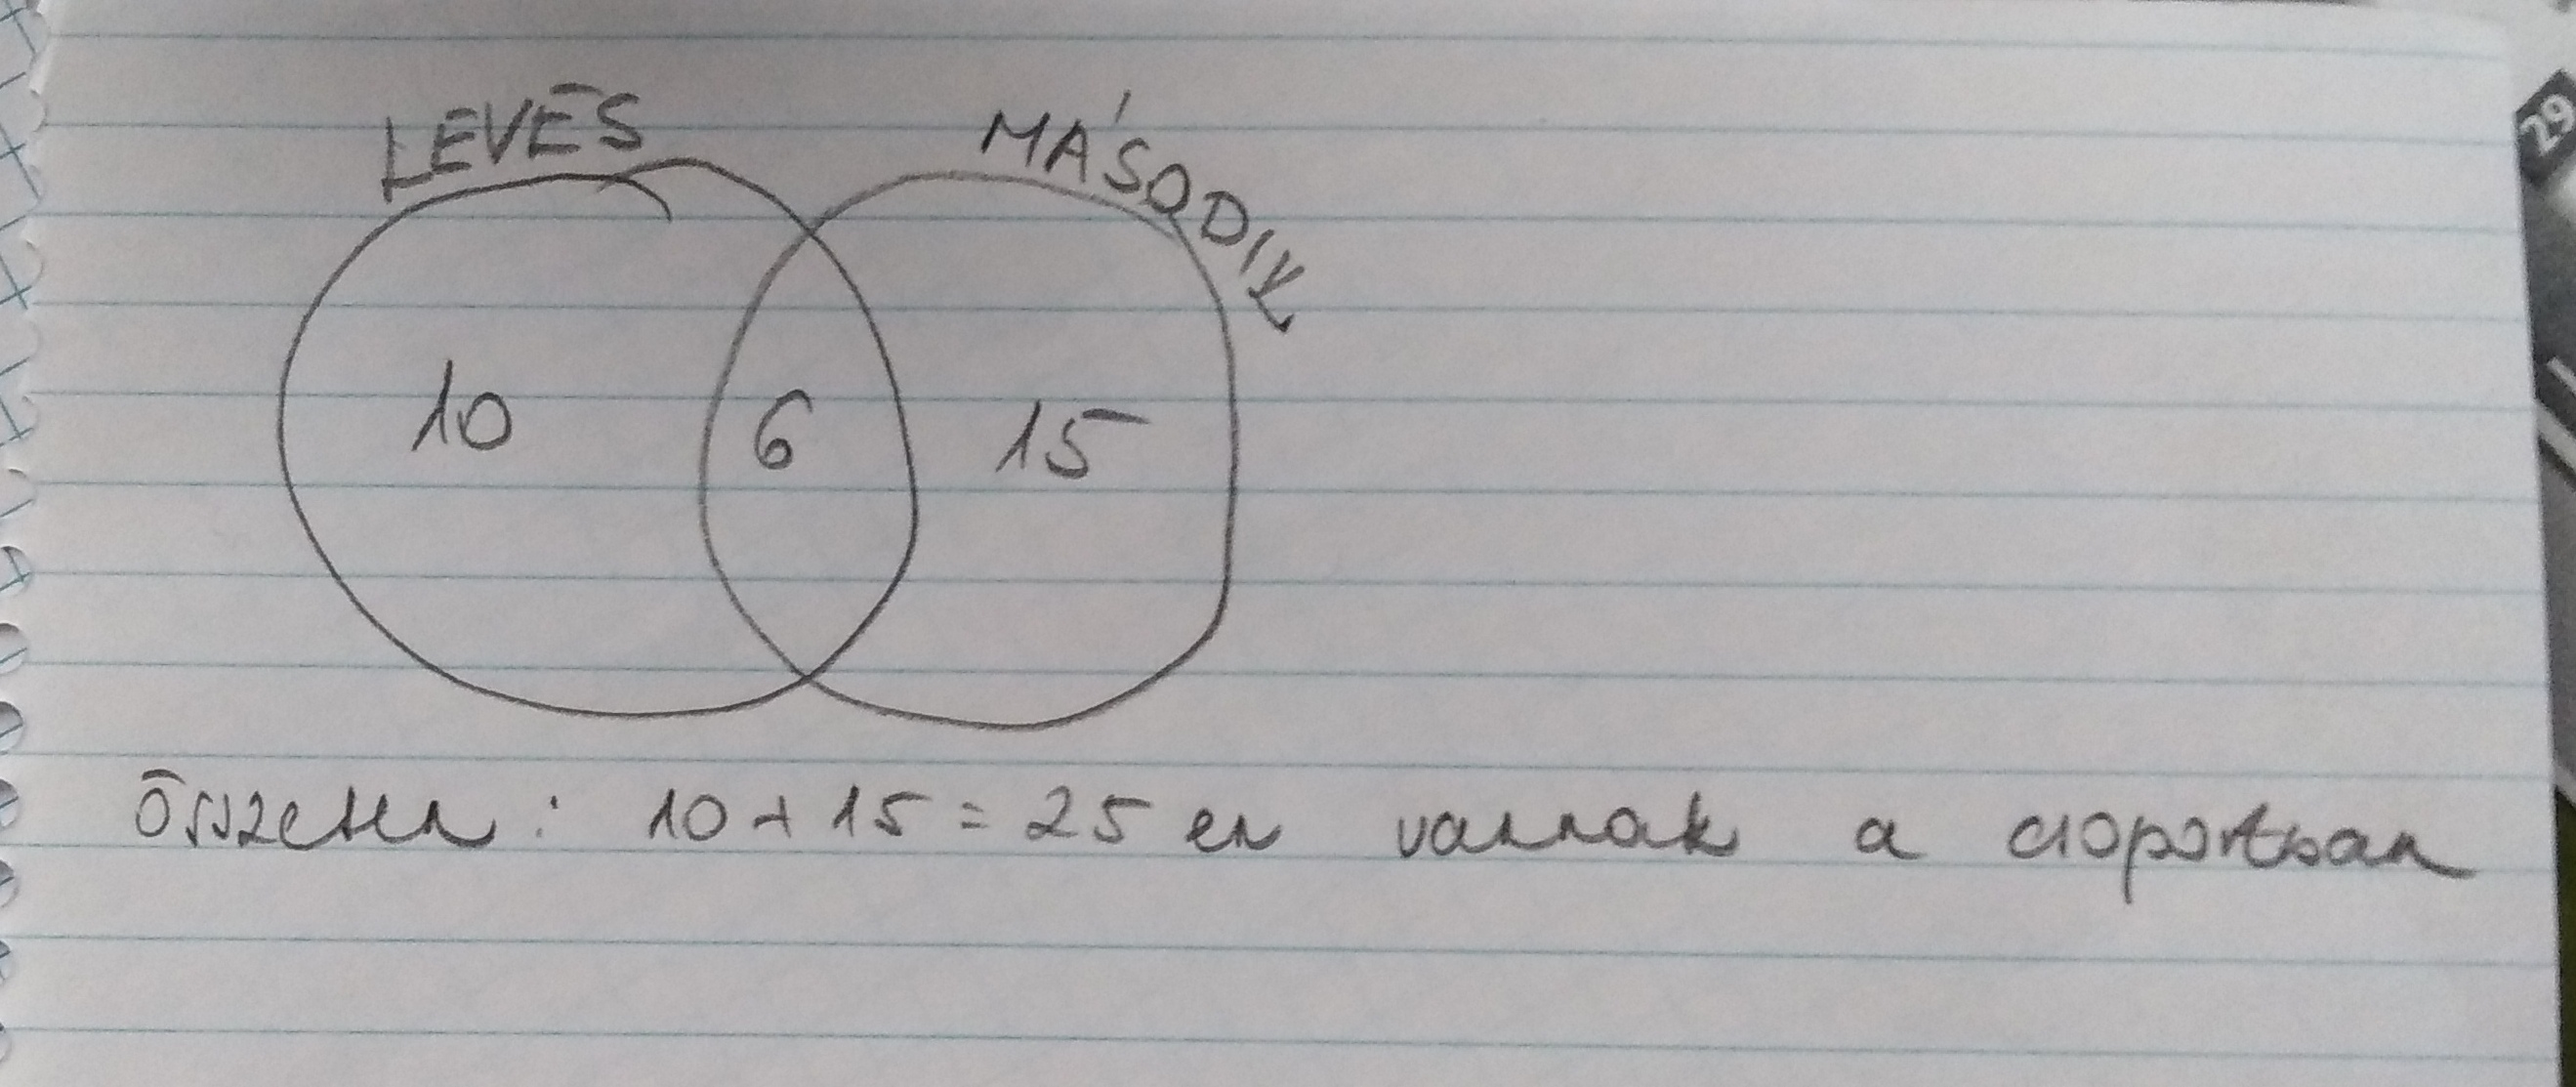 LEVES
MÁSODIK
10
6
15
összesen: 10 + 15 = 25 en vannak a csoportban
29